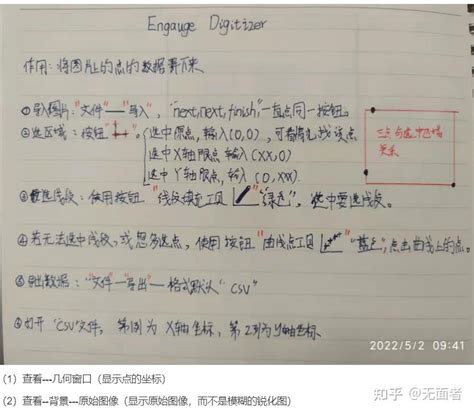 Engauge Digitizer
作用：将图片上的点的数据弄下来
①导入图片：“文件”—“导入”，“next,next,finish,”一直点同一按钮。
②选区域：按钮“ ”。
选中原点，输入(0,0)，可看情况找该点
选中X轴限点 输入(XX,0)
选中Y轴限点，输入(0,XX).
三点勾选中区域
关系
选线段：使用按钮“线段填充工具”“绿色”，选中要选线段。
④若无法选中线段，或想多选点，使用按钮“曲线点工具”“蓝点”，点击曲线上的点。
数据：“文件”—“导出”—格式默认“csv”
打开“csv”文件，第1列为X轴坐标，第2列为y轴坐标
2022/5/2 09:41
（1）查看---几何窗口（显示点的坐标）
（2）查看--背景---原始图像（显示原始图像，而不是模糊的锐化图）
知乎 @无面者